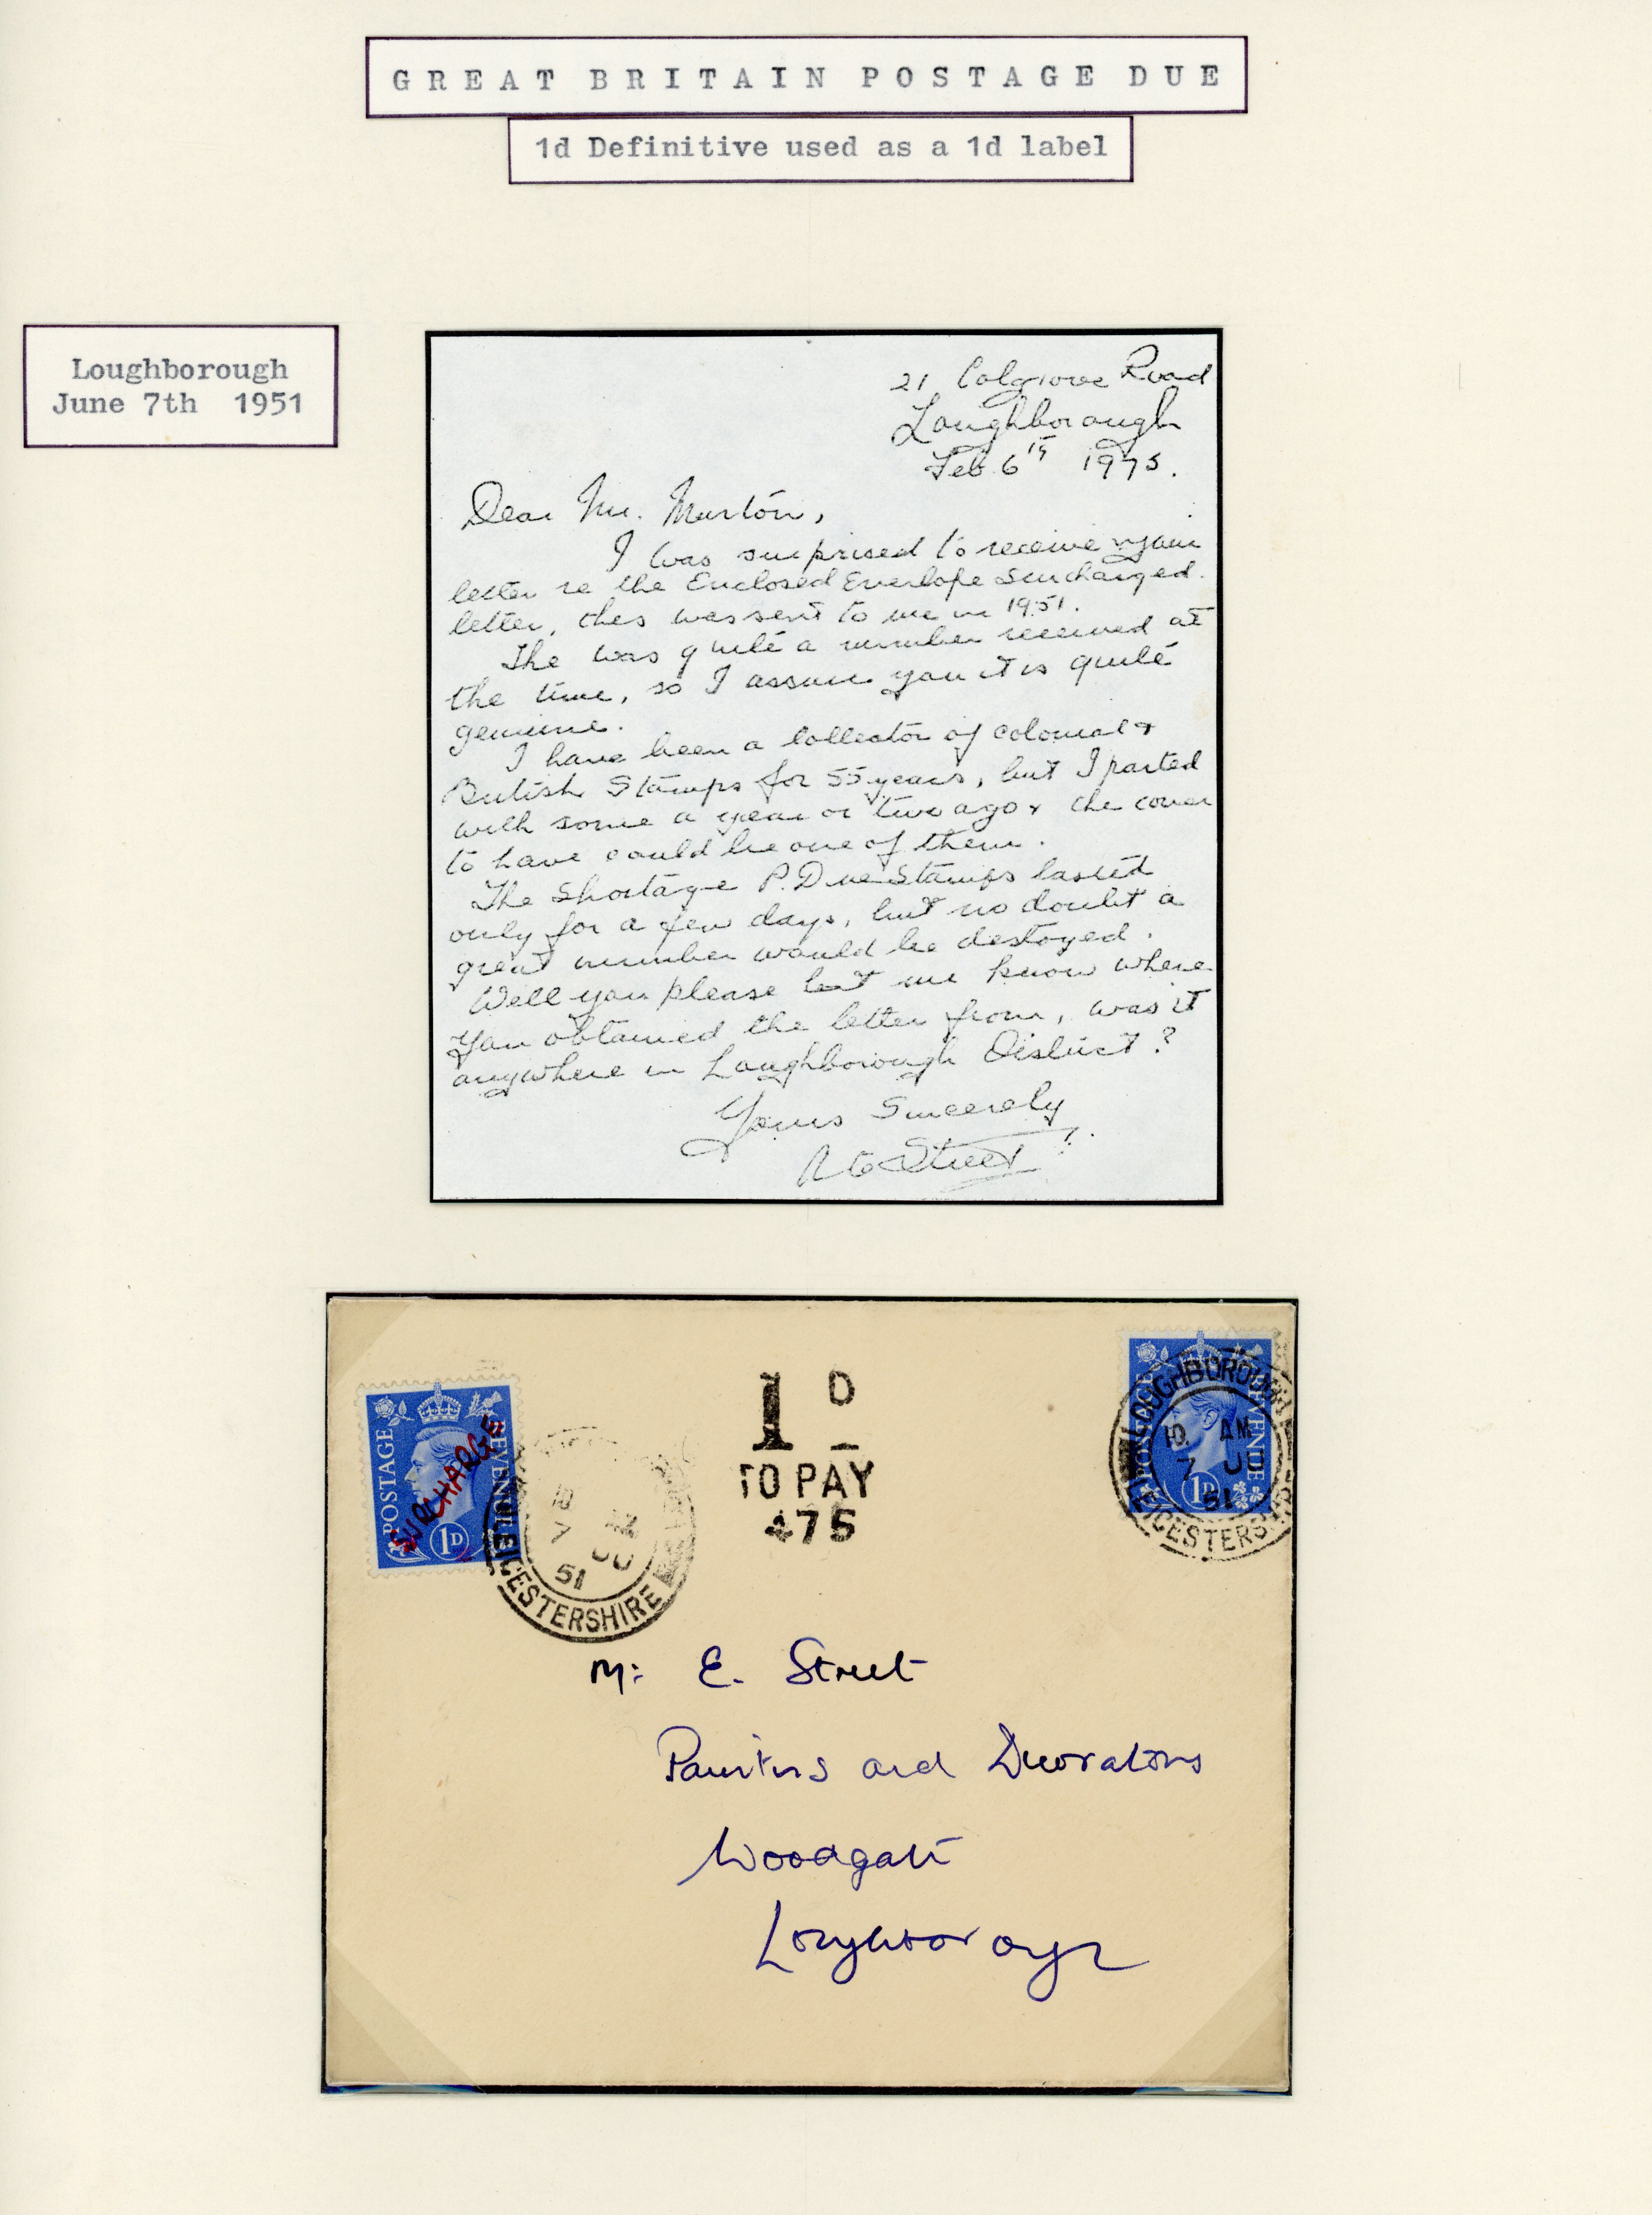 GREAT BRITAIN POSTAGE DUE
1d Definitive used as a 1d label
Loughborough
June 7th 1951
21 Colgrove Road
Loughborough
Feb 6th 1975.
Dear Mr. Murton,
I was surprised to receive your
letter re the Enclosed Envelope Surcharged
letter, this was sent to me in 1951.
The was quite a number received at
the time, so I assure you it is quite
genuine.
I have been a collector of colonial &
British Stamps for 55 years, but I parted
with some a year or two ago & the cover
to have could be one of them.
The Shortage P. Due Stamps lasted
only for a few days, but no doubt a
great number would be destoyed.
Well you please let me know where
you obtained the letter from, was it
anywhere in Loughborough District?
Yours Sincerely
Street
POSTAGE REVENUE
1D
SURCHARGE
LEICESTERSHIRE
JU
51
1D
TO PAY
475
POSTAGE REVENUE
1D
LOUGHBOROUGH
10. AM
7 JU
51
LEICESTERSHIRE
Mr E. Street
Painters and Decorators
Woodgate
Loughborough